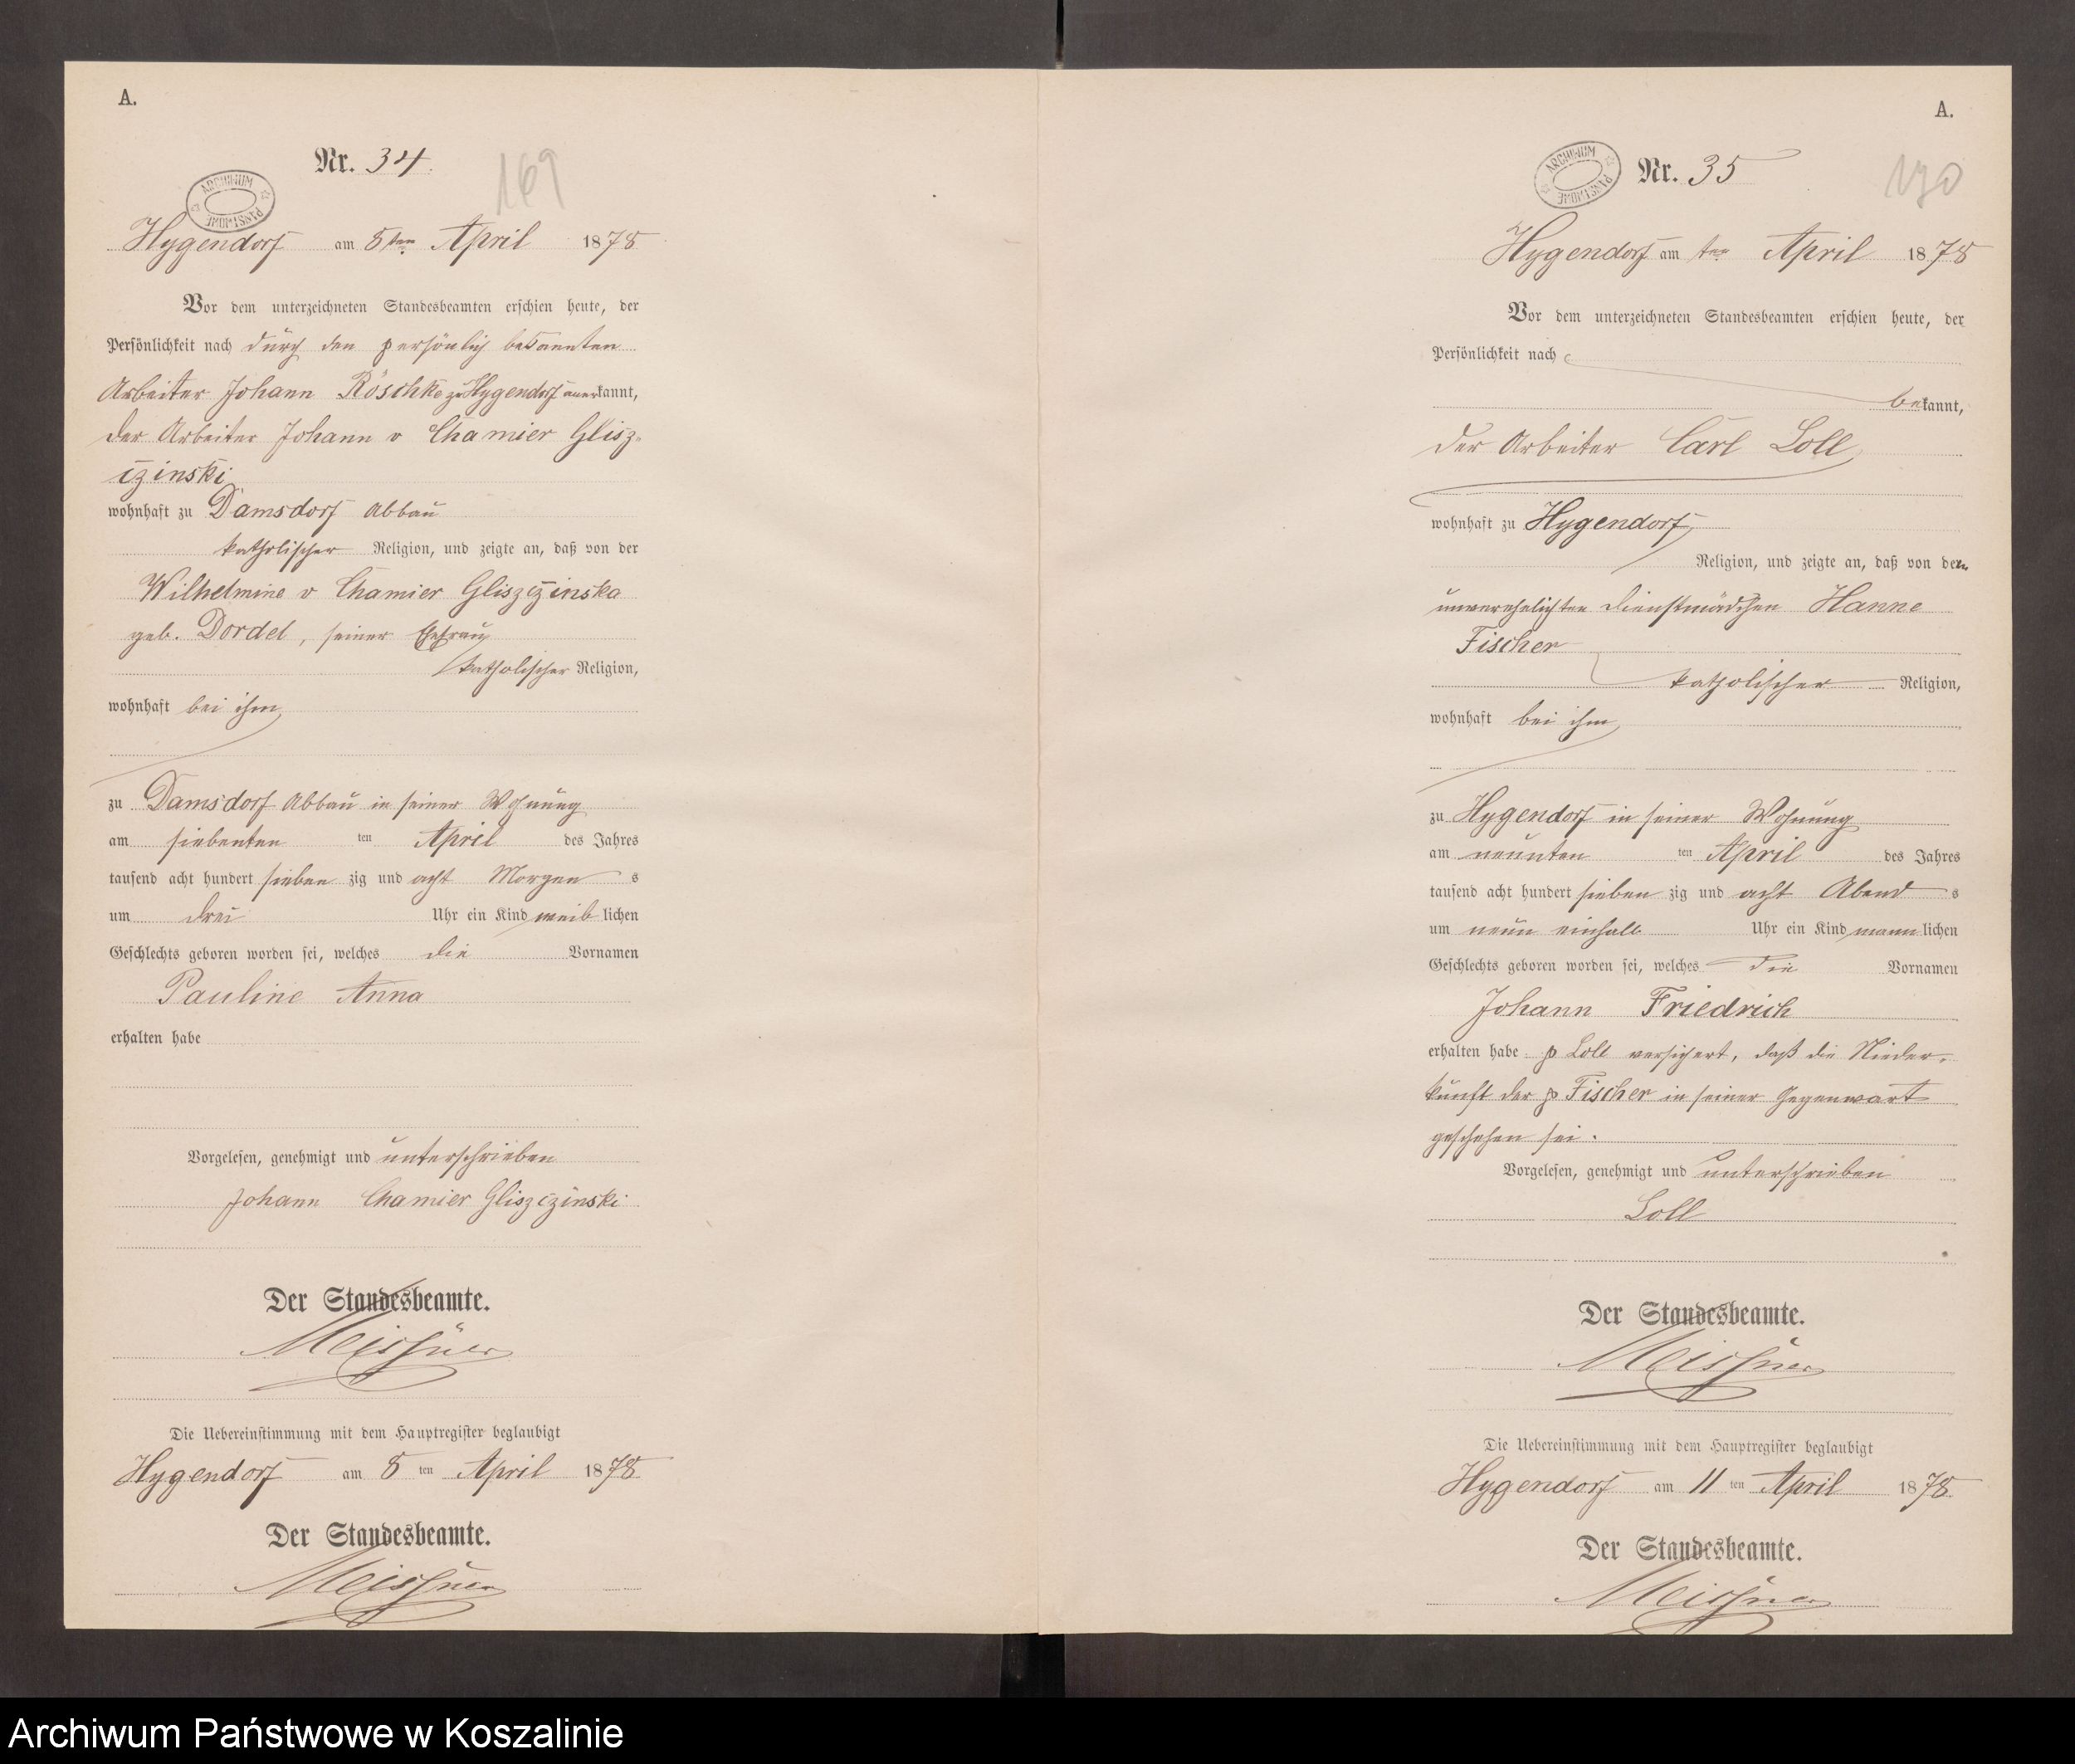 A.
Nr. 34.
169
ARCHIWUM PAŃSTWOWE
Hygendorf am 8ten April 1878
Vor dem unterzeichneten Standesbeamten erschien heute, der
Persönlichkeit nach durch den persönlich bekannten
Arbeiter Johann Röschke zu Hygendorf anerkannt,
der Arbeiter Johann v Chamier Glisz-
czinski
wohnhaft zu Damsdorf Abbau
katholischer Religion, und zeigte an, daß von der
Wilhelmine v Chamier Gliszczinska
geb. Dordel, seiner Ehefrau
katholischer Religion,
wohnhaft bei ihm
zu Damsdorf Abbau in seiner Wohnung
am siebenten ten April des Jahres
tausend acht hundert sieben zig und acht Morgen s
um drei Uhr ein Kind weib lichen
Geschlechts geboren worden sei, welches die Vornamen
Pauline Anna
erhalten habe
Vorgelesen, genehmigt und unterschrieben
Johann Chamier Gliszczinski
Der Standesbeamte.
Meissner
Die Uebereinstimmung mit dem Hauptregister beglaubigt
Hygendorf am 8 ten April 1878
Der Standesbeamte.
Meissner
A.
Nr. 35
170
ARCHIWUM PAŃSTWOWE
Hygendorf am ten April 1878
Vor dem unterzeichneten Standesbeamten erschien heute, der
Persönlichkeit nach
bekannt,
der Arbeiter Carl Loll
wohnhaft zu Hygendorf
Religion, und zeigte an, daß von der
unverehelichten Dienstmädchen Hanne
Fischer
katholischer Religion,
wohnhaft bei ihm
zu Hygendorf in seiner Wohnung
am neunten ten April des Jahres
tausend acht hundert sieben zig und acht Abend s
um neun einhalb Uhr ein Kind männ lichen
Geschlechts geboren worden sei, welches die Vornamen
Johann Friedrich
erhalten habe p Loll versichert, daß die Nieder-
kunft der p Fischer in seiner Gegenwart
geschehen sei.
Vorgelesen, genehmigt und unterschrieben
Loll
Der Standesbeamte.
Meissner
Die Uebereinstimmung mit dem Hauptregister beglaubigt
Hygendorf am 11 ten April 1878
Der Standesbeamte.
Meissner
Archiwum Państwowe w Koszalinie